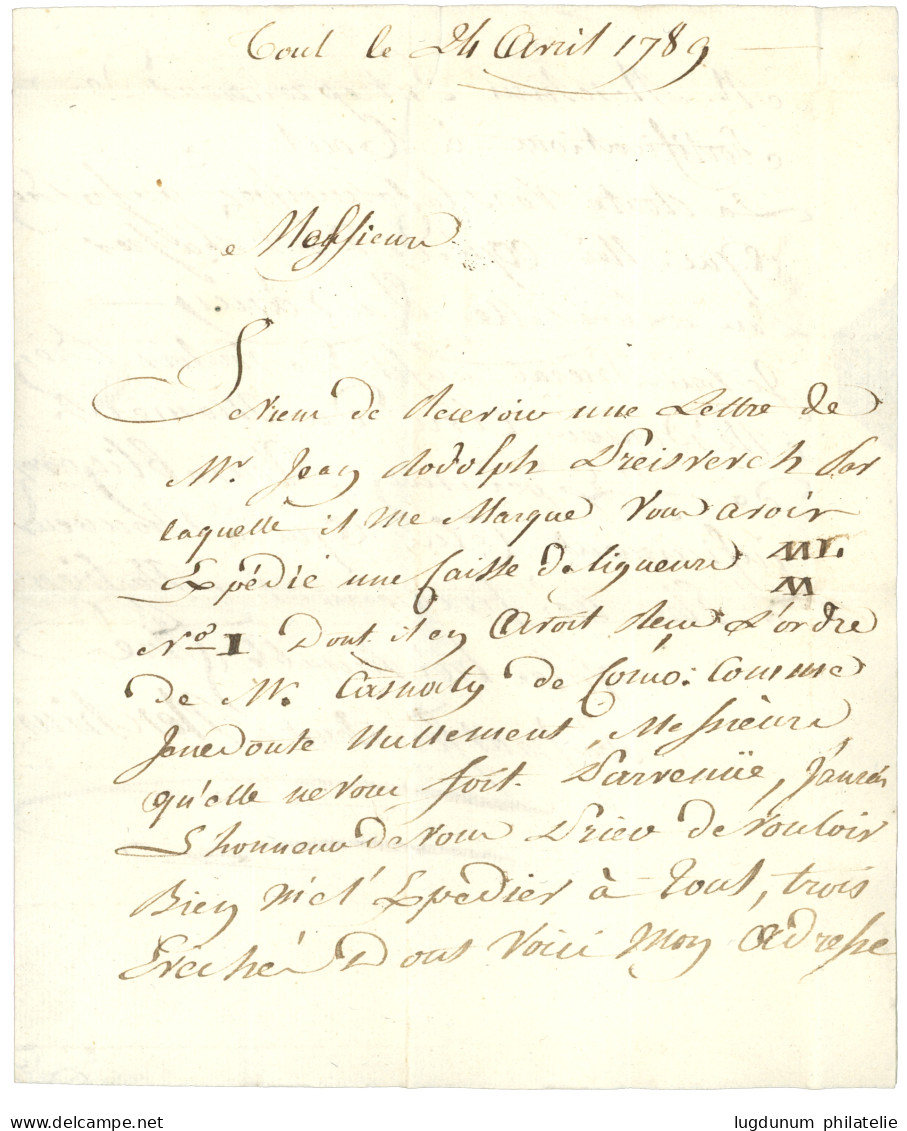 Toul le 24 Avril 1789
Messieurs
Je Viens de Recevoir une Lettre de
Mr. Jean Rodolph Preisverch Par
laquelle il Me Marque Vous avoir
Expédié une Caisse de liqueurs ML
M
No. 1 Dont il en Avoit Recu L'ordre
de Mr. Casnaty de Como. Comme
Jene doute Nullement, Messieurs
qu'elle ne Vous soit Parvenüe, J'aurai
L'honneur de vous Prier de vouloir
Bien m'el' Expedier à Toul, trois
Evechés Dont Voici Mon Adresse
lugdunum philatelie